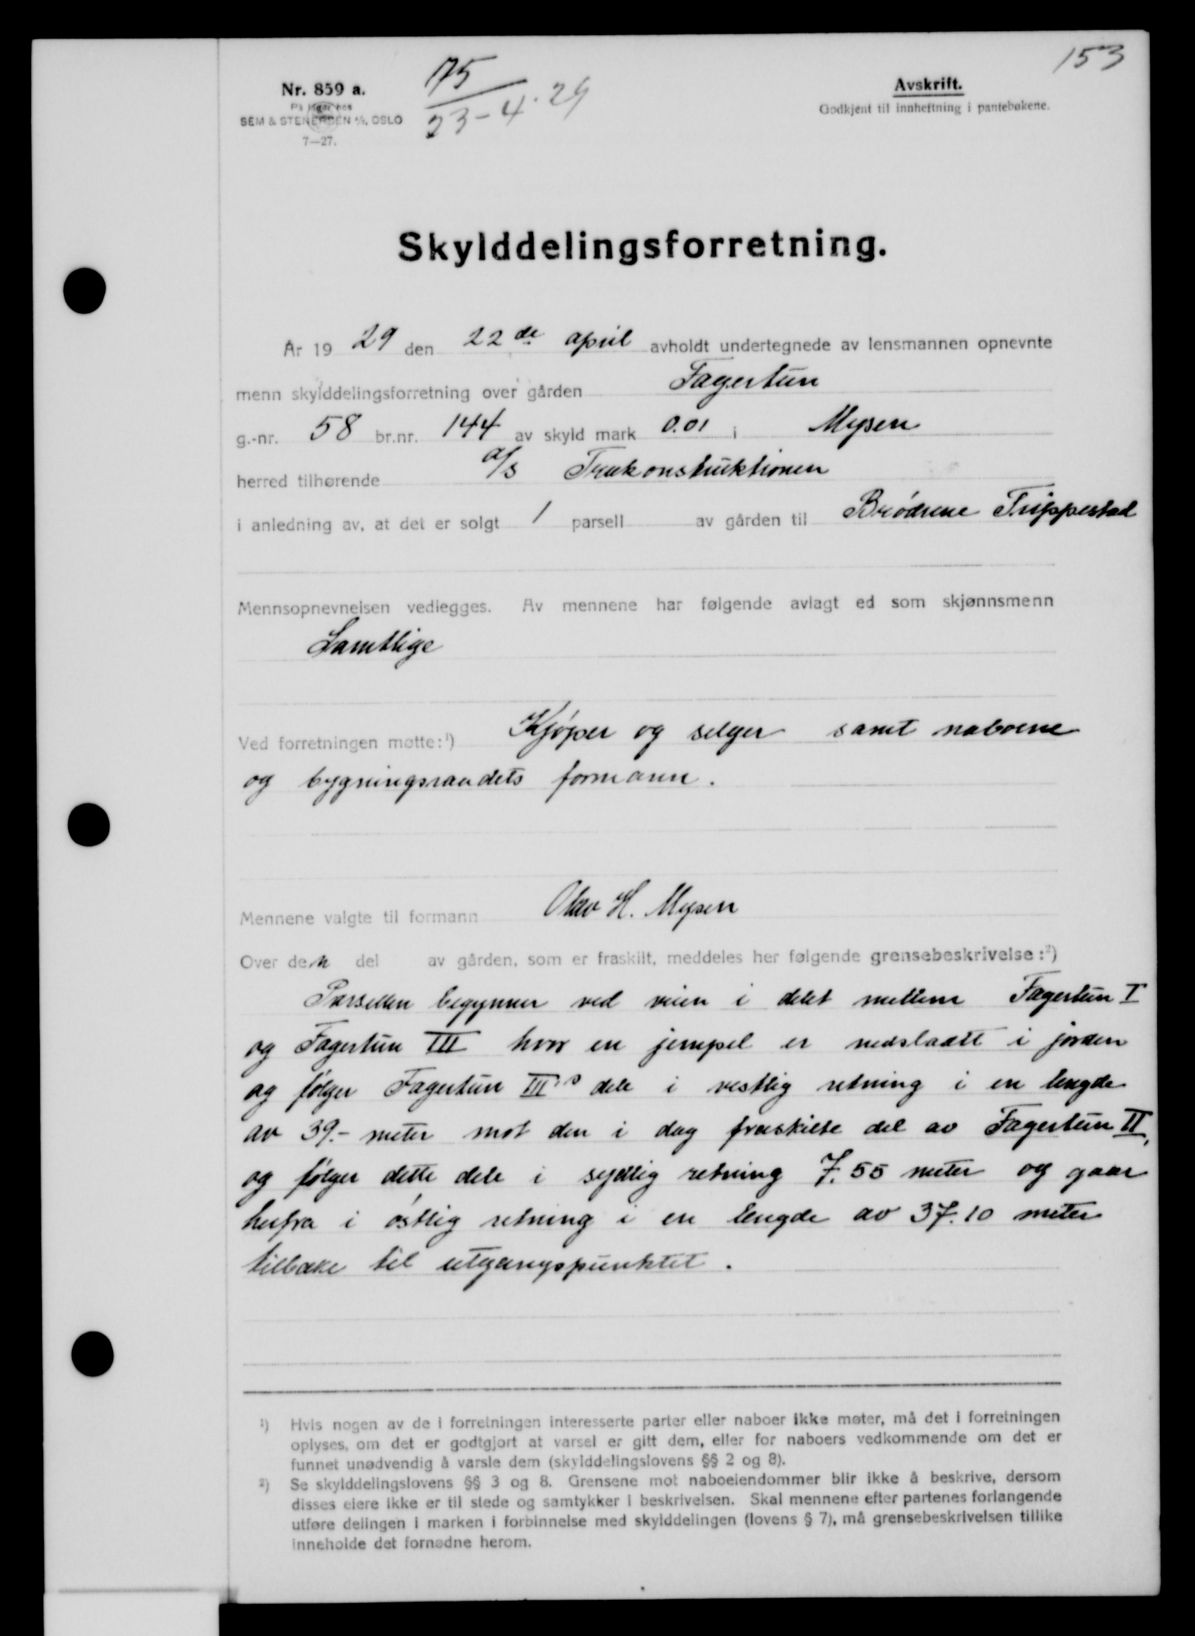 153
Nr. 859 a.
175
23-4-29
Avskrift.
Godkjent til innheftning i pantebøkene.
På lager hos
SEM & STENERSEN A/S, OSLO
7—27.
Skylddelingsforretning.
År 1929 den 22de april avholdt undertegnede av lensmannen opnevnte
menn skylddelingsforretning over gården Fagertun
g.-nr. 58 br.nr. 144 av skyld mark 0.01 i Mysen
herred tilhørende a/s Trækonstruktionen
i anledning av, at det er solgt 1 parsell av gården til Brødrene Trippestad
Mennsopnevnelsen vedlegges. Av mennene har følgende avlagt ed som skjønnsmenn
Samtlige
Ved forretningen møtte:¹) Kjøper og selger samt naboerne
og bygningsraadets formann.
Mennene valgte til formann Olav H. Mysen
Over den del av gården, som er fraskilt, meddeles her følgende grensebeskrivelse:²)
Parsellen begynner ved veien i delet mellem Fagertun I
og Fagertun III hvor en jernpel er nedslaatt i jorden
og følger Fagertun III's dele i vestlig retning i en lengde
av 39.- meter mot den i dag fraskilte del av Fagertun II,
og følger dette dele i sydlig retning 7.55 meter og gaar
herfra i østlig retning i en lengde av 37.10 meter
tilbake til utgangspunktet.
¹) Hvis nogen av de i forretningen interesserte parter eller naboer ikke møter, må det i forretningen
oplyses, om det er godtgjort at varsel er gitt dem, eller for naboers vedkommende om det er
funnet unødvendig å varsle dem (skylddelingslovens §§ 2 og 8).
²) Se skylddelingslovens §§ 3 og 8. Grensene mot naboeiendommer blir ikke å beskrive, dersom
disses eiere ikke er til stede og samtykker i beskrivelsen. Skal mennene efter partenes forlangende
utføre delingen i marken i forbinnelse med skylddelingen (lovens § 7), må grensebeskrivelsen tillike
inneholde det fornødne herom.